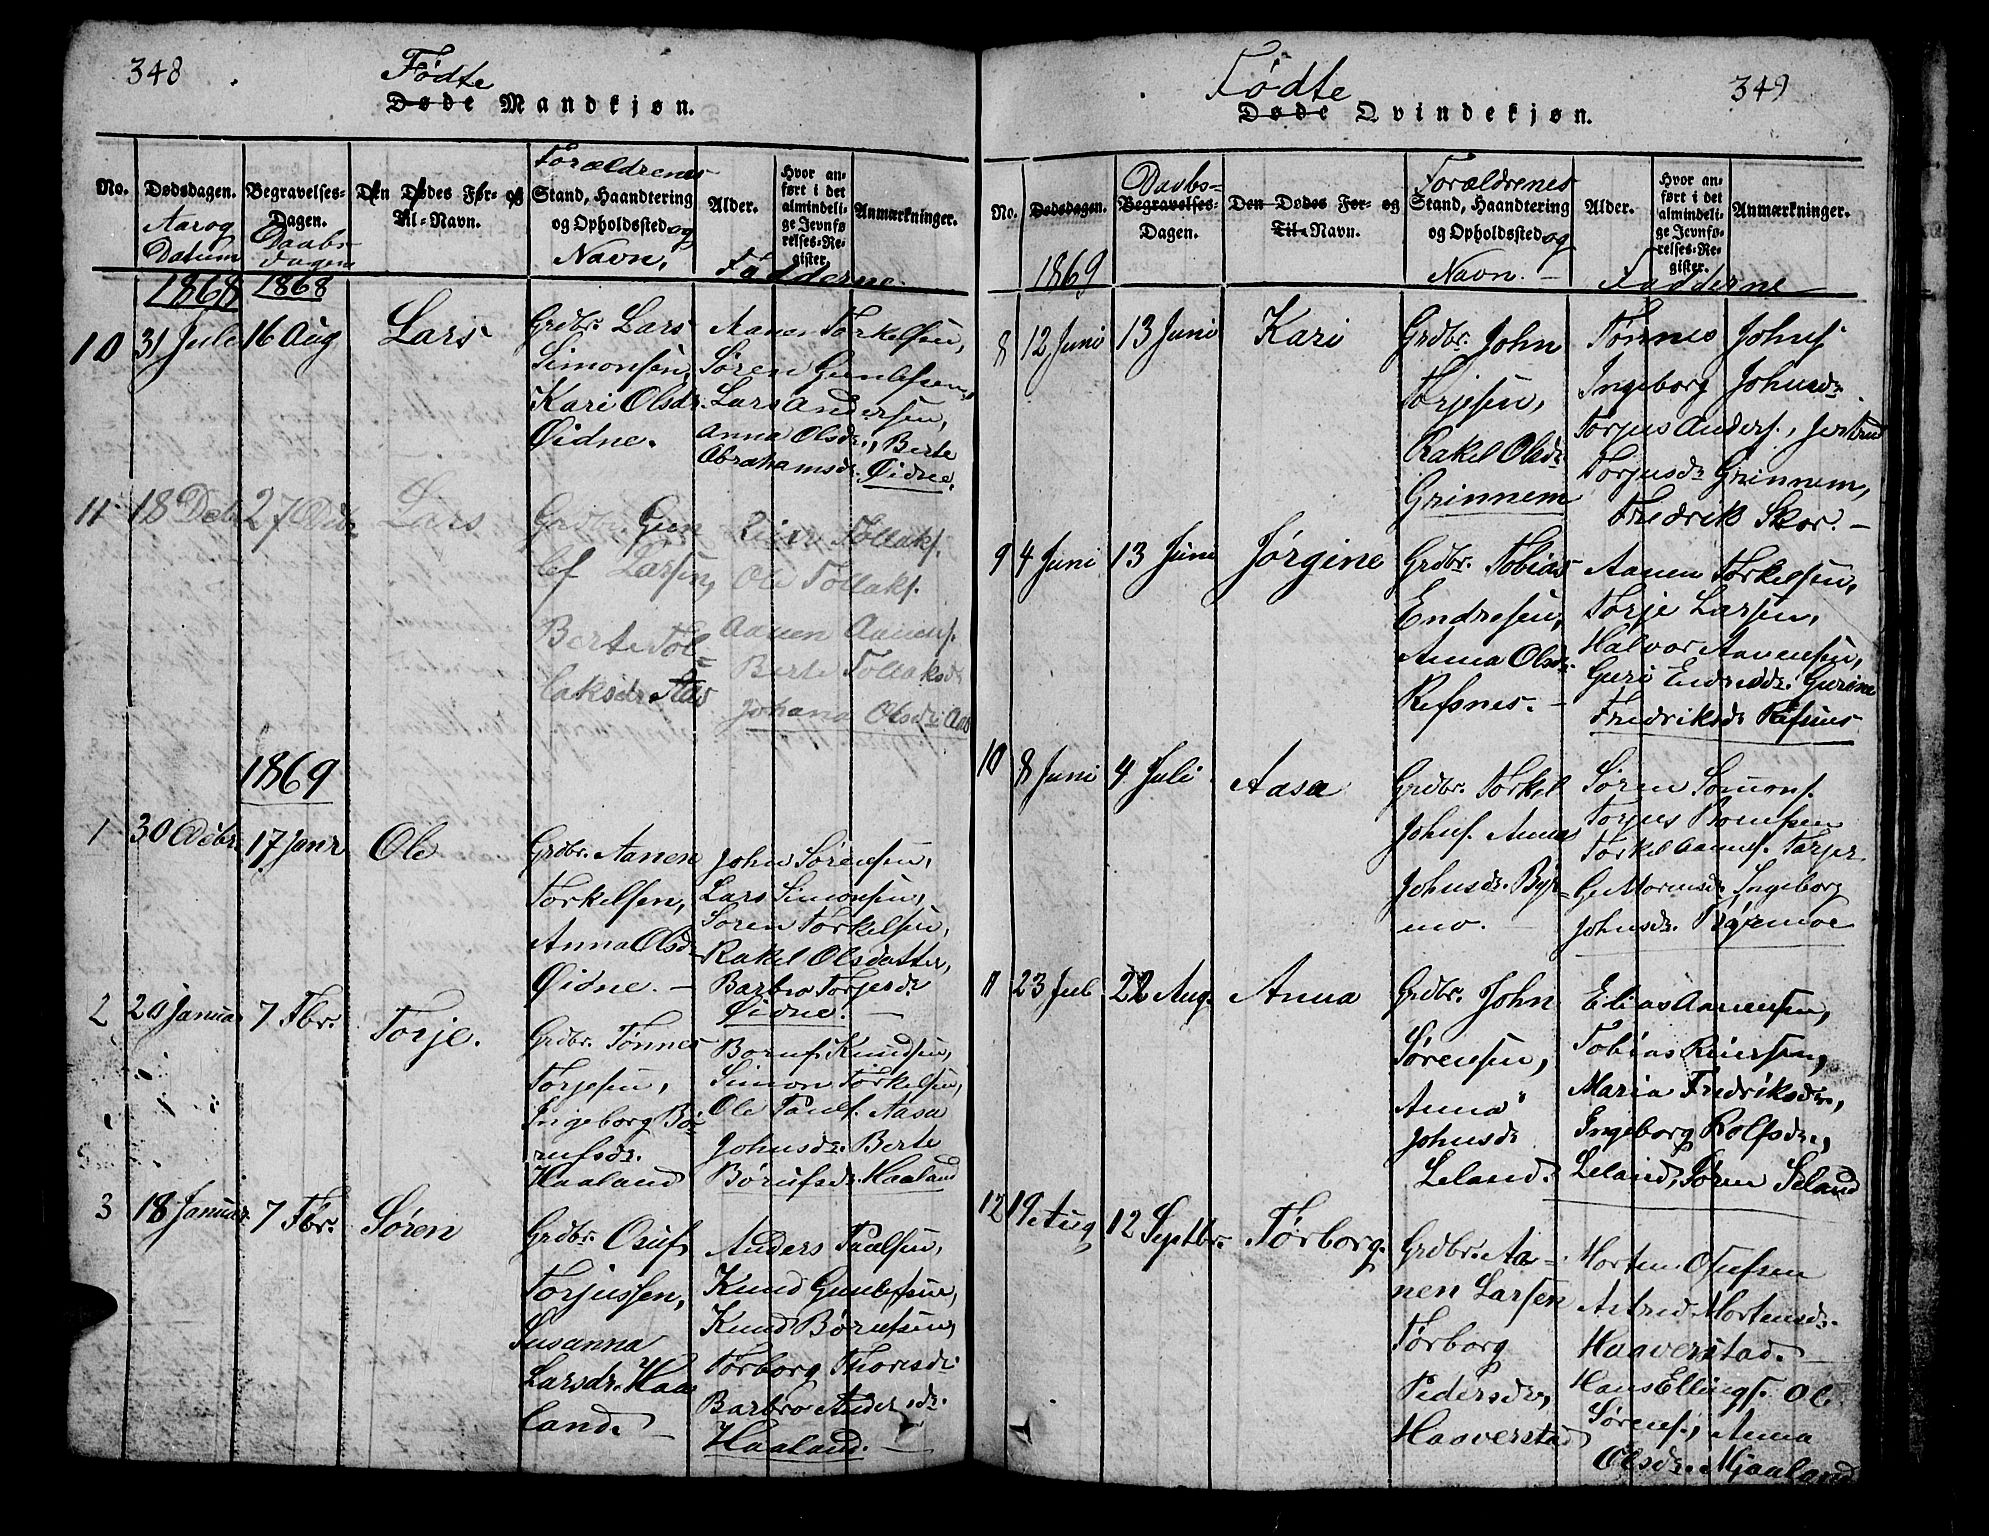 348
Fødte
Døde Mandkjøn.
No.
Dødsdagen.
Aar og
Datum
Begravelses-
Dagen.
Daabs
dagen
Den Dødes For- og
Til-Navn.
Forældrenes
Stand, Haandtering
og Opholdssted og
Navn.
Alder.
Hvor an-
ført i det
almindeli-
ge Jevnfø-
relses-Re-
gister.
Anmærkninger.
Fadderne.
1868 1868
10 31 Juli 16 Aug Lars
Grdbr. Lars
Simonsen,
Kari Olsdr.
Øidne.
Aanen Torkelsen,
Søren Gunlefsen,
Lars Andersen,
Anna Olsdr., Berte
Abrahamsdr.
Øidne.
11 18 Debr 27 Debr Lars
Grdbr. Gun
lef Larsen,
Berte Tol-
laksdr. Aas
Reier Tollaks.
Ole Tollaks.
Aanen Aanens.
Berte Tollaksdr
Johana Olsdr. Aas
1869
1 30 Debr. 17 Janr Ole
Grdbr. Aanen
Torkelsen,
Anna Olsdr.
Øidne. —
John Sørensen,
Lars Simonsen,
Søren Torkelsen,
Rakel Olsdatter,
Barbro Torjesdr.
Øidne. —
2 20 Januar 7 Fbr. Torje.
Grdbr. Tønnes
Torjesen,
Ingeborg Bo-
rufsdr.
Haaland
Boruf Knudsen,
Simon Torkelsen,
Ole Pauls. Aasa
Johnsdr. Berte
Børufsdr. Haaland
3 18 Januar 7 Fbr. Søren
Grdbr. Osuf
Torjussen,
Susanna
Larsdr. Haa
land. —
Anders Paalsen,
Knud Gunlefsen,
Knud Børufsen,
Torborg Thoresdr.
Barbro Andersdr.
Haaland. —
349
Fødte
Døde Qvindekjøn.
No.
Dødsdagen.
1869
Daabs-
Begravelses-
Dagen.
Den Dødes For- og
Til-Navn.
Forældrenes
Stand, Haandtering
og Opholdssted og
Navn. —
Alder.
Hvor an-
ført i det
almindeli-
ge Jevnfø-
relses-Re-
gister.
Anmærkninger.
Fadderne
8 12 Juni 13 Juni Kari
Grdbr. John
Torjesen,
Rakel Olsdr.
Grinnem
Tønnes Johns.
Ingeborg Johnsdr.
Torjus Anders.,
Torjusdr. Grinnem,
Fredrik Skor. —
9 4 Juni 13 Juni Jørgine
Grdbr. Tobias
Endresen,
Anna Olsdr.
Refsnes. —
Aanen Torkelsen,
Torje Larsen,
Halvor Aanensen,
Guri Endresdr. Gurine
Fredriksdr. Refsnes
10 8 Juni 4 Juli Aasa
Grdbr. Torkel
Johns. Anna
Johnsdr. Byr-
mo.
Søren Simons.
Torjus
Torkel Aanens.
Ingeborg
Johnsdr. Byremoe
11 23 Juli 22 Aug. Anna
Grdbr. John
Sørensen,
Anna
Johnsdr.
Leland.
Elias Aanensen,
Tobias Reiersen,
Maria Fredriksdr.,
Ingeborg Rolfsdr.,
Leland, Søren Seland
12 19 Aug 12 Septbr. Tørborg.
Grdbr. Aa-
nen Larsen
Tørborg
Pedersdr.,
Haaverstad
Morten Olufsen
Astrid Mortensdr.
Haaverstad. —
Hans Ellings. Ole
Sørens., Anna
Olsdr. Mjaaland